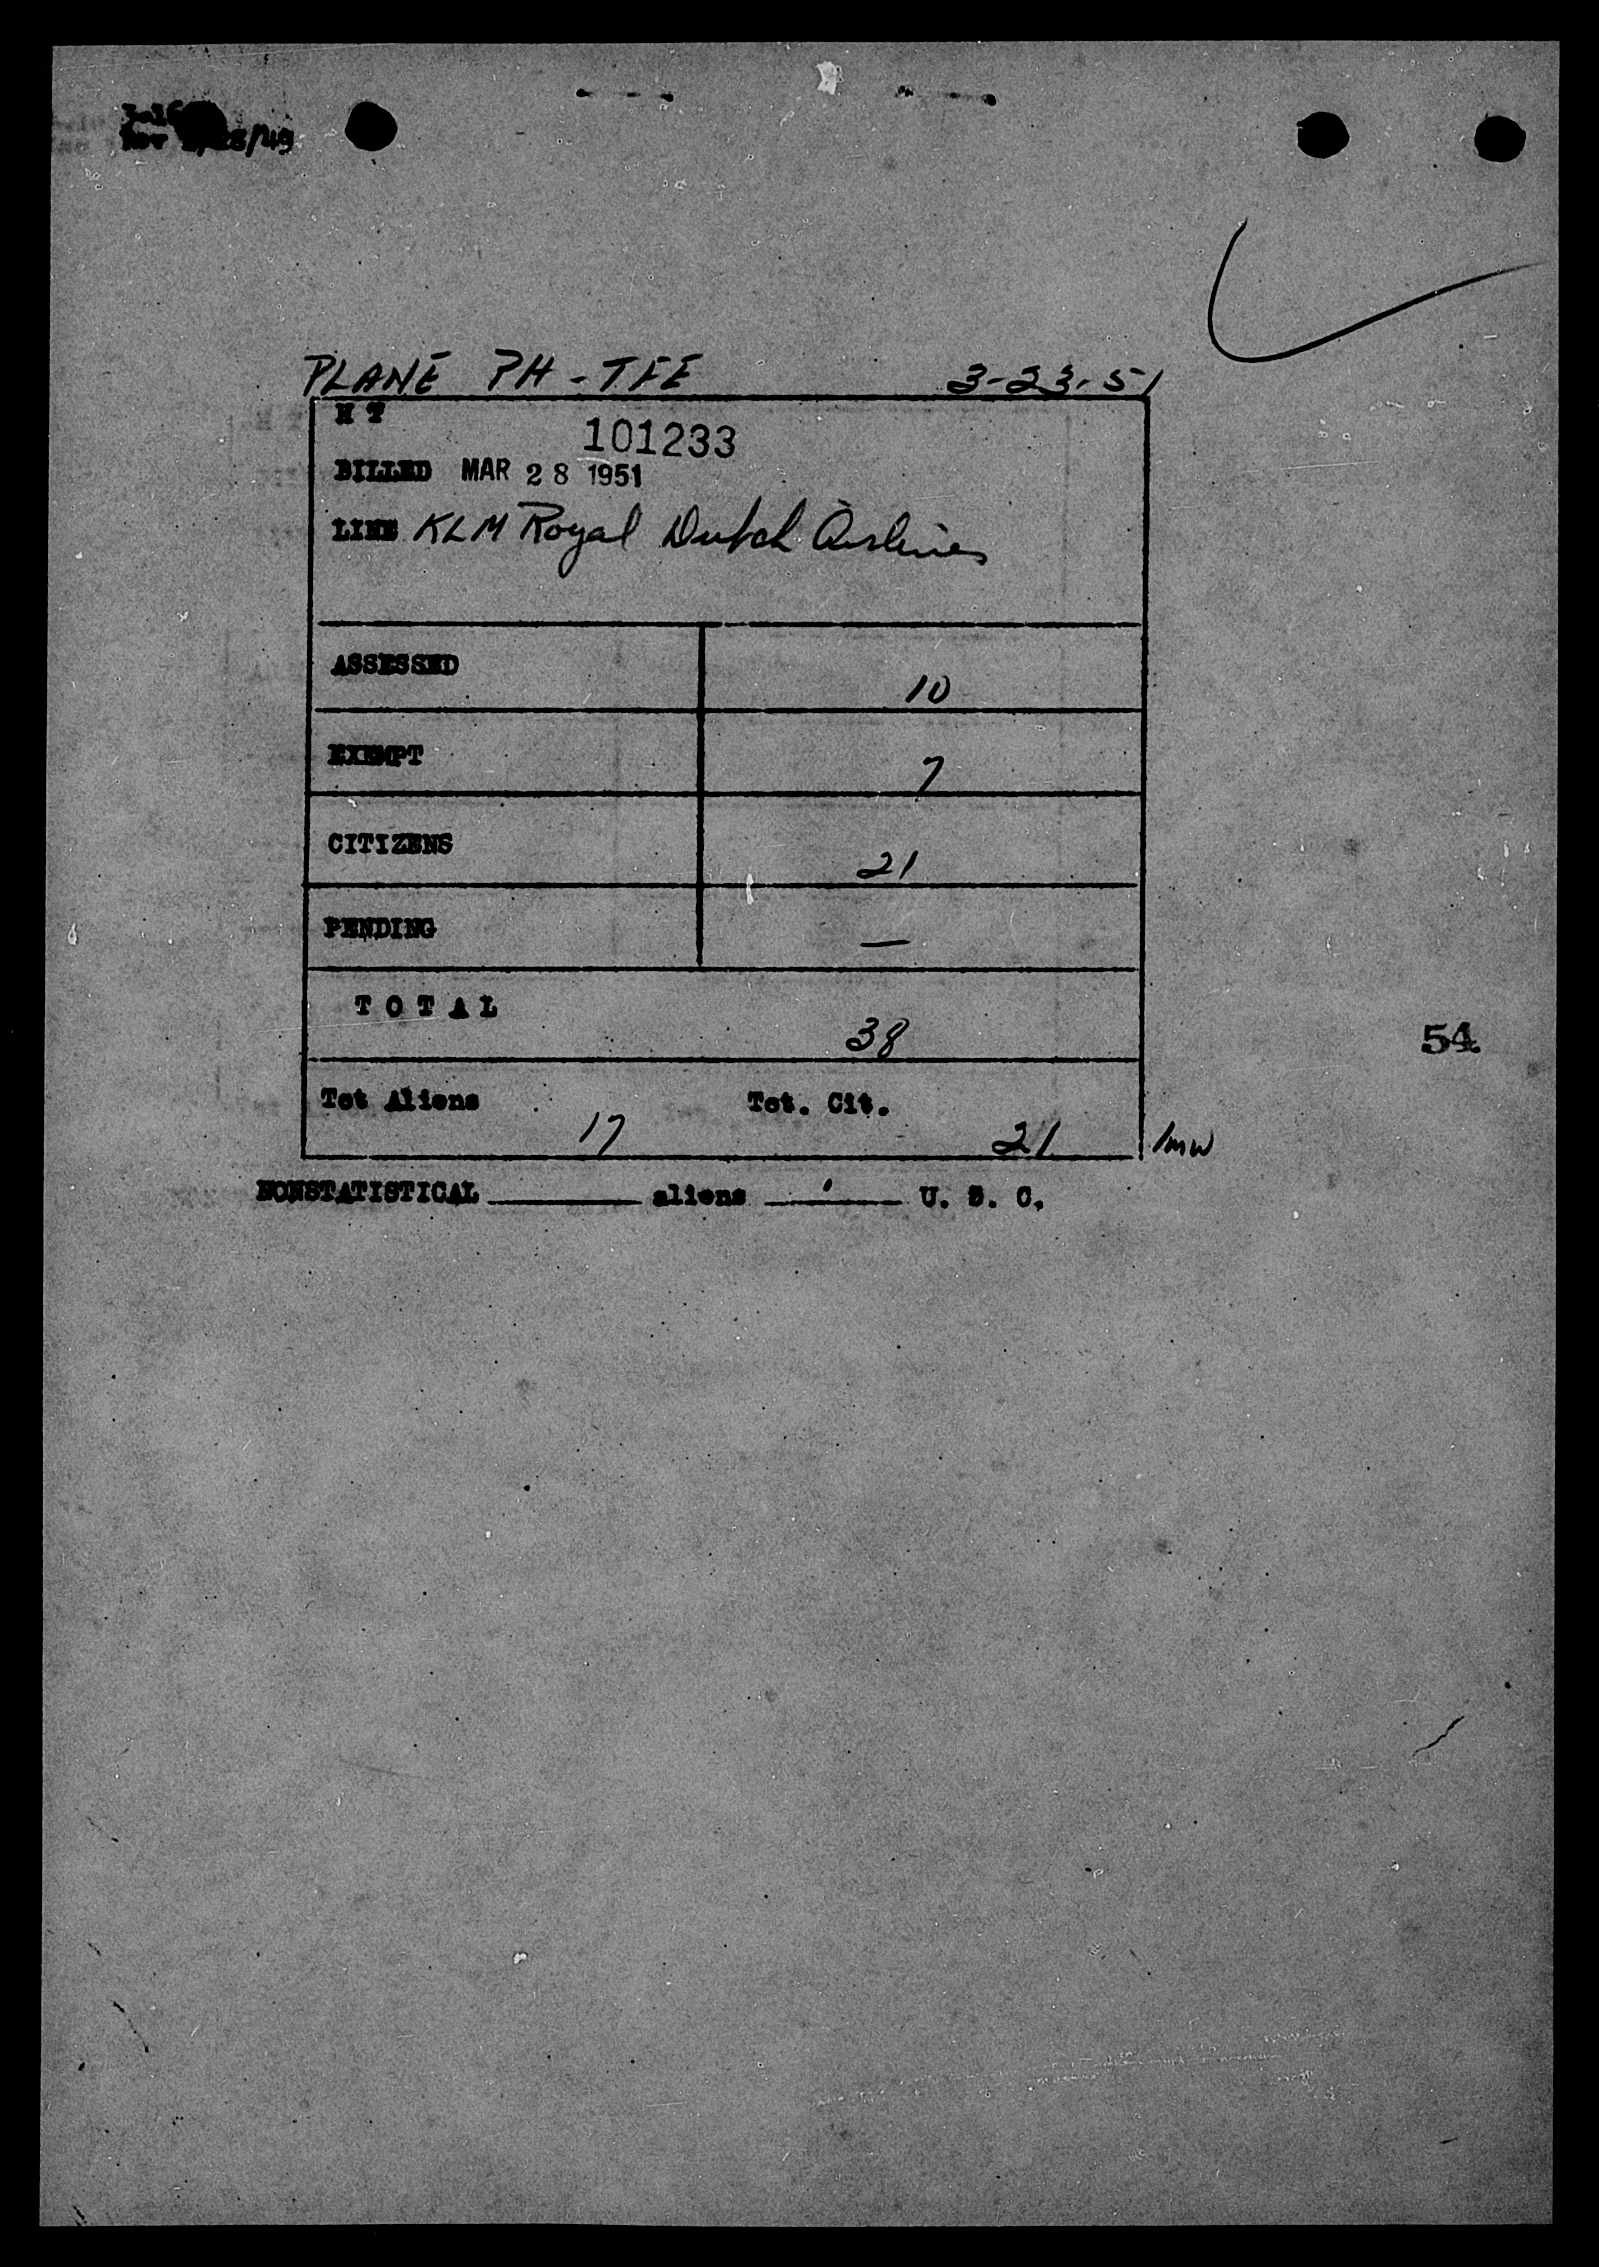 PLANE PH-TFE 3-23-51
H T
101233
BILLED MAR 28 1951
LINE KLM Royal Dutch Airlines
ASSESSED 10
EXEMPT 7
CITIZENS 21
PENDING —
TOTAL 38
54
Tot Aliens 17 Tot. Cit. 21 /mw
NONSTATISTICAL ______ aliens ______ U. S. C.